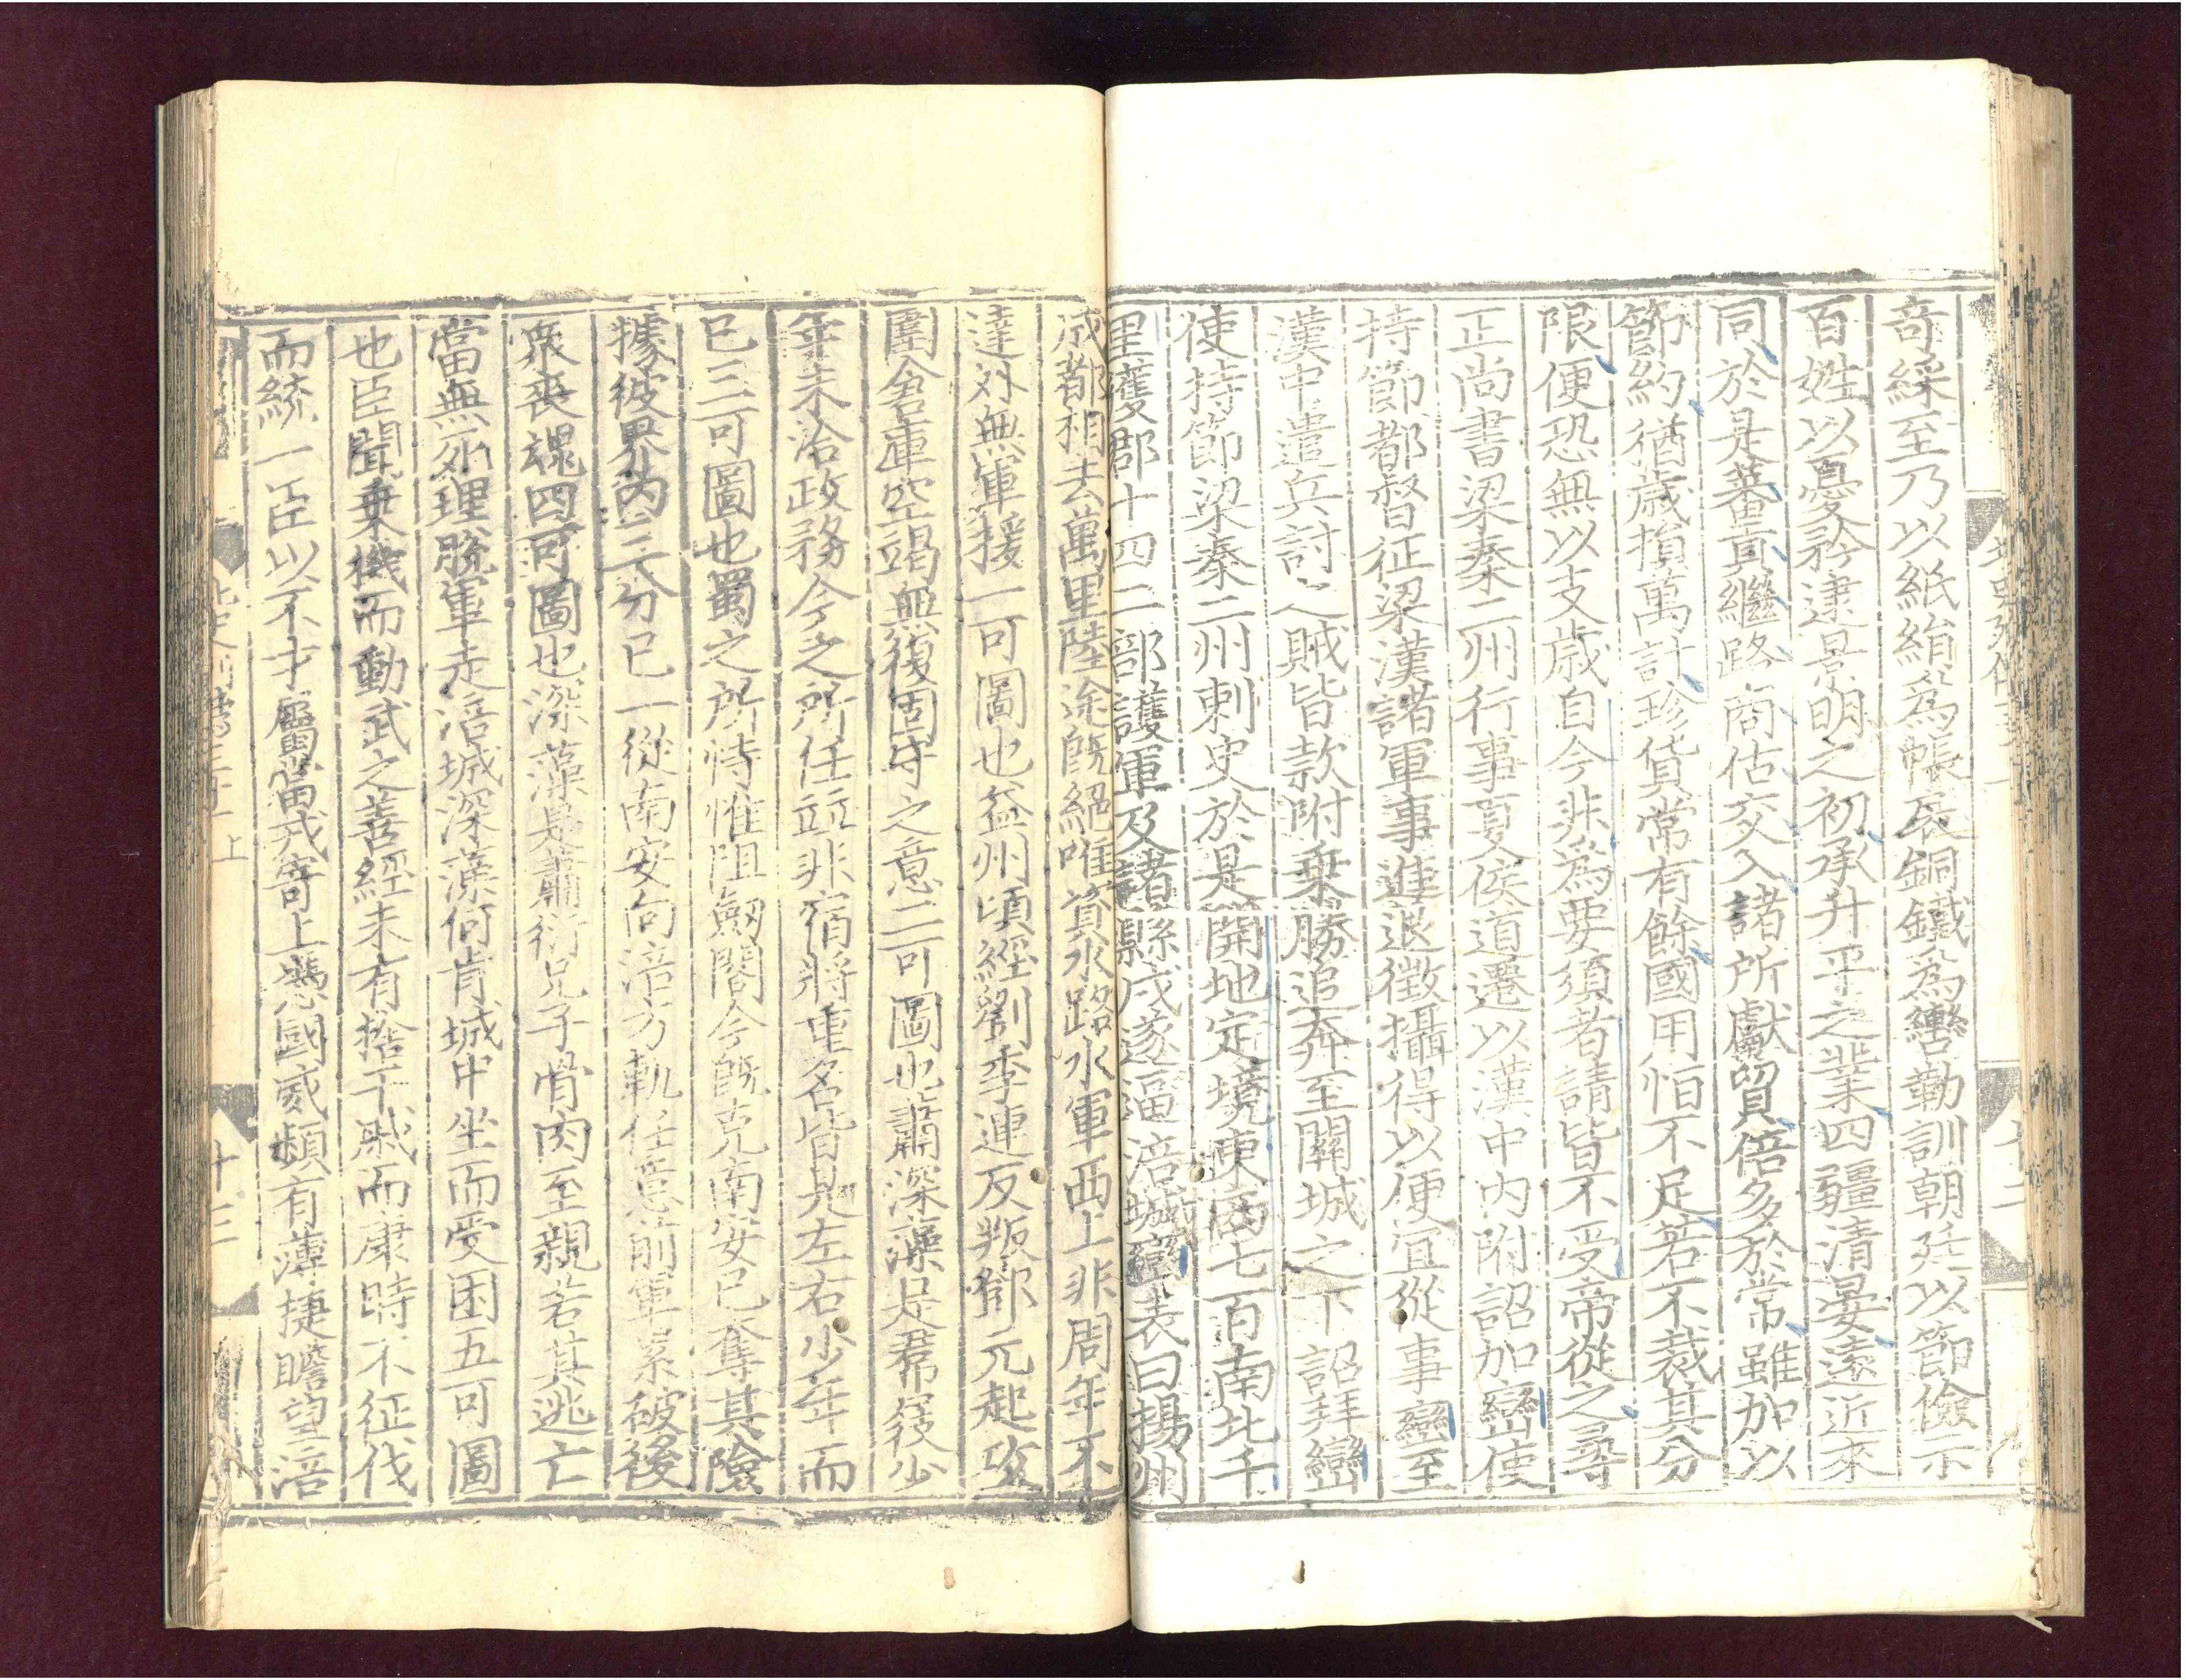 奇綵至乃以紙絹爲帳扆銅鐵爲轡勒訓朝廷以節儉示
百姓以憂矜逮景明之初承升平之業四疆清晏遠近來
同於是蕃貢繼路商估交入諸所獻貿倍多於常雖加以
節約猶歲損萬計珍貨常有餘國用恒不足若不裁其分
限便恐無以支歲自今非爲要須者請皆不受帝從之尋
正尚書梁秦二州行事夏侯道遷以漢中內附詔加巒使
持節都督征梁漢諸軍事進退徵攝得以便宜從事巒至
漢中遣兵討之賊皆款附乗勝追奔至關城之下詔拜巒
使持節梁秦二州刺史於是開地定境東西七百南北千
里獲郡十四二部護軍及諸縣戍遂逼涪城巒表曰揚州
成都相去萬里陸途旣絕唯資水路水軍西上非周年不
達外無軍援一可圖也益州頃經劉季連反叛鄧元起攻
圍倉庫空竭無復固守之意二可圖也蕭深藻是裙屐少
年未洽政務今之所任並非宿將重名皆是左右少年而
已三可圖也蜀之所恃惟阻劒閣今旣克南安已奪其險
據彼界內三分已一從南安向涪方軌任意前軍累破後
衆喪魂四可圖也深藻是蕭衍兄子骨肉至親若其逃亡
當無死理脫軍走涪城深藻何肯城中坐而受困五可圖
也臣聞乗機而動武之善經未有捨干戚而康時不征伐
而統一臣以不才屬當戎寄上憑國威頻有薄捷瞻望涪
北史列傳三十一 上
十三